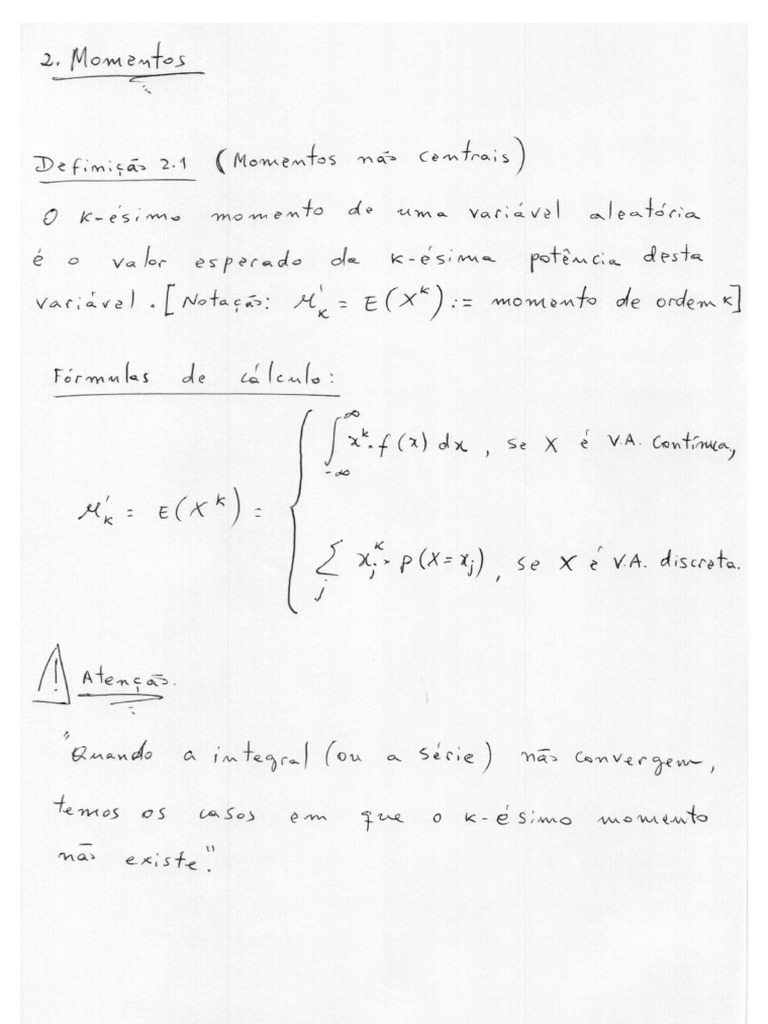 2. Momentos
Definição 2.1 (Momentos não centrais)
O k-ésimo momento de uma variável aleatória
é o valor esperado da k-ésima potência desta
variável. [Notação: μ'ₖ = E(Xᵏ) := momento de ordem k]
Fórmulas de cálculo:
∫_{-∞}^{∞} xᵏ·f(x) dx, se X é V.A. contínua,
μ'ₖ = E(Xᵏ) = {
∑_j x_jᵏ·p(X=x_j), se X é V.A. discreta.
! Atenção.
"Quando a integral (ou a série) não convergem,
temos os casos em que o k-ésimo momento
não existe".